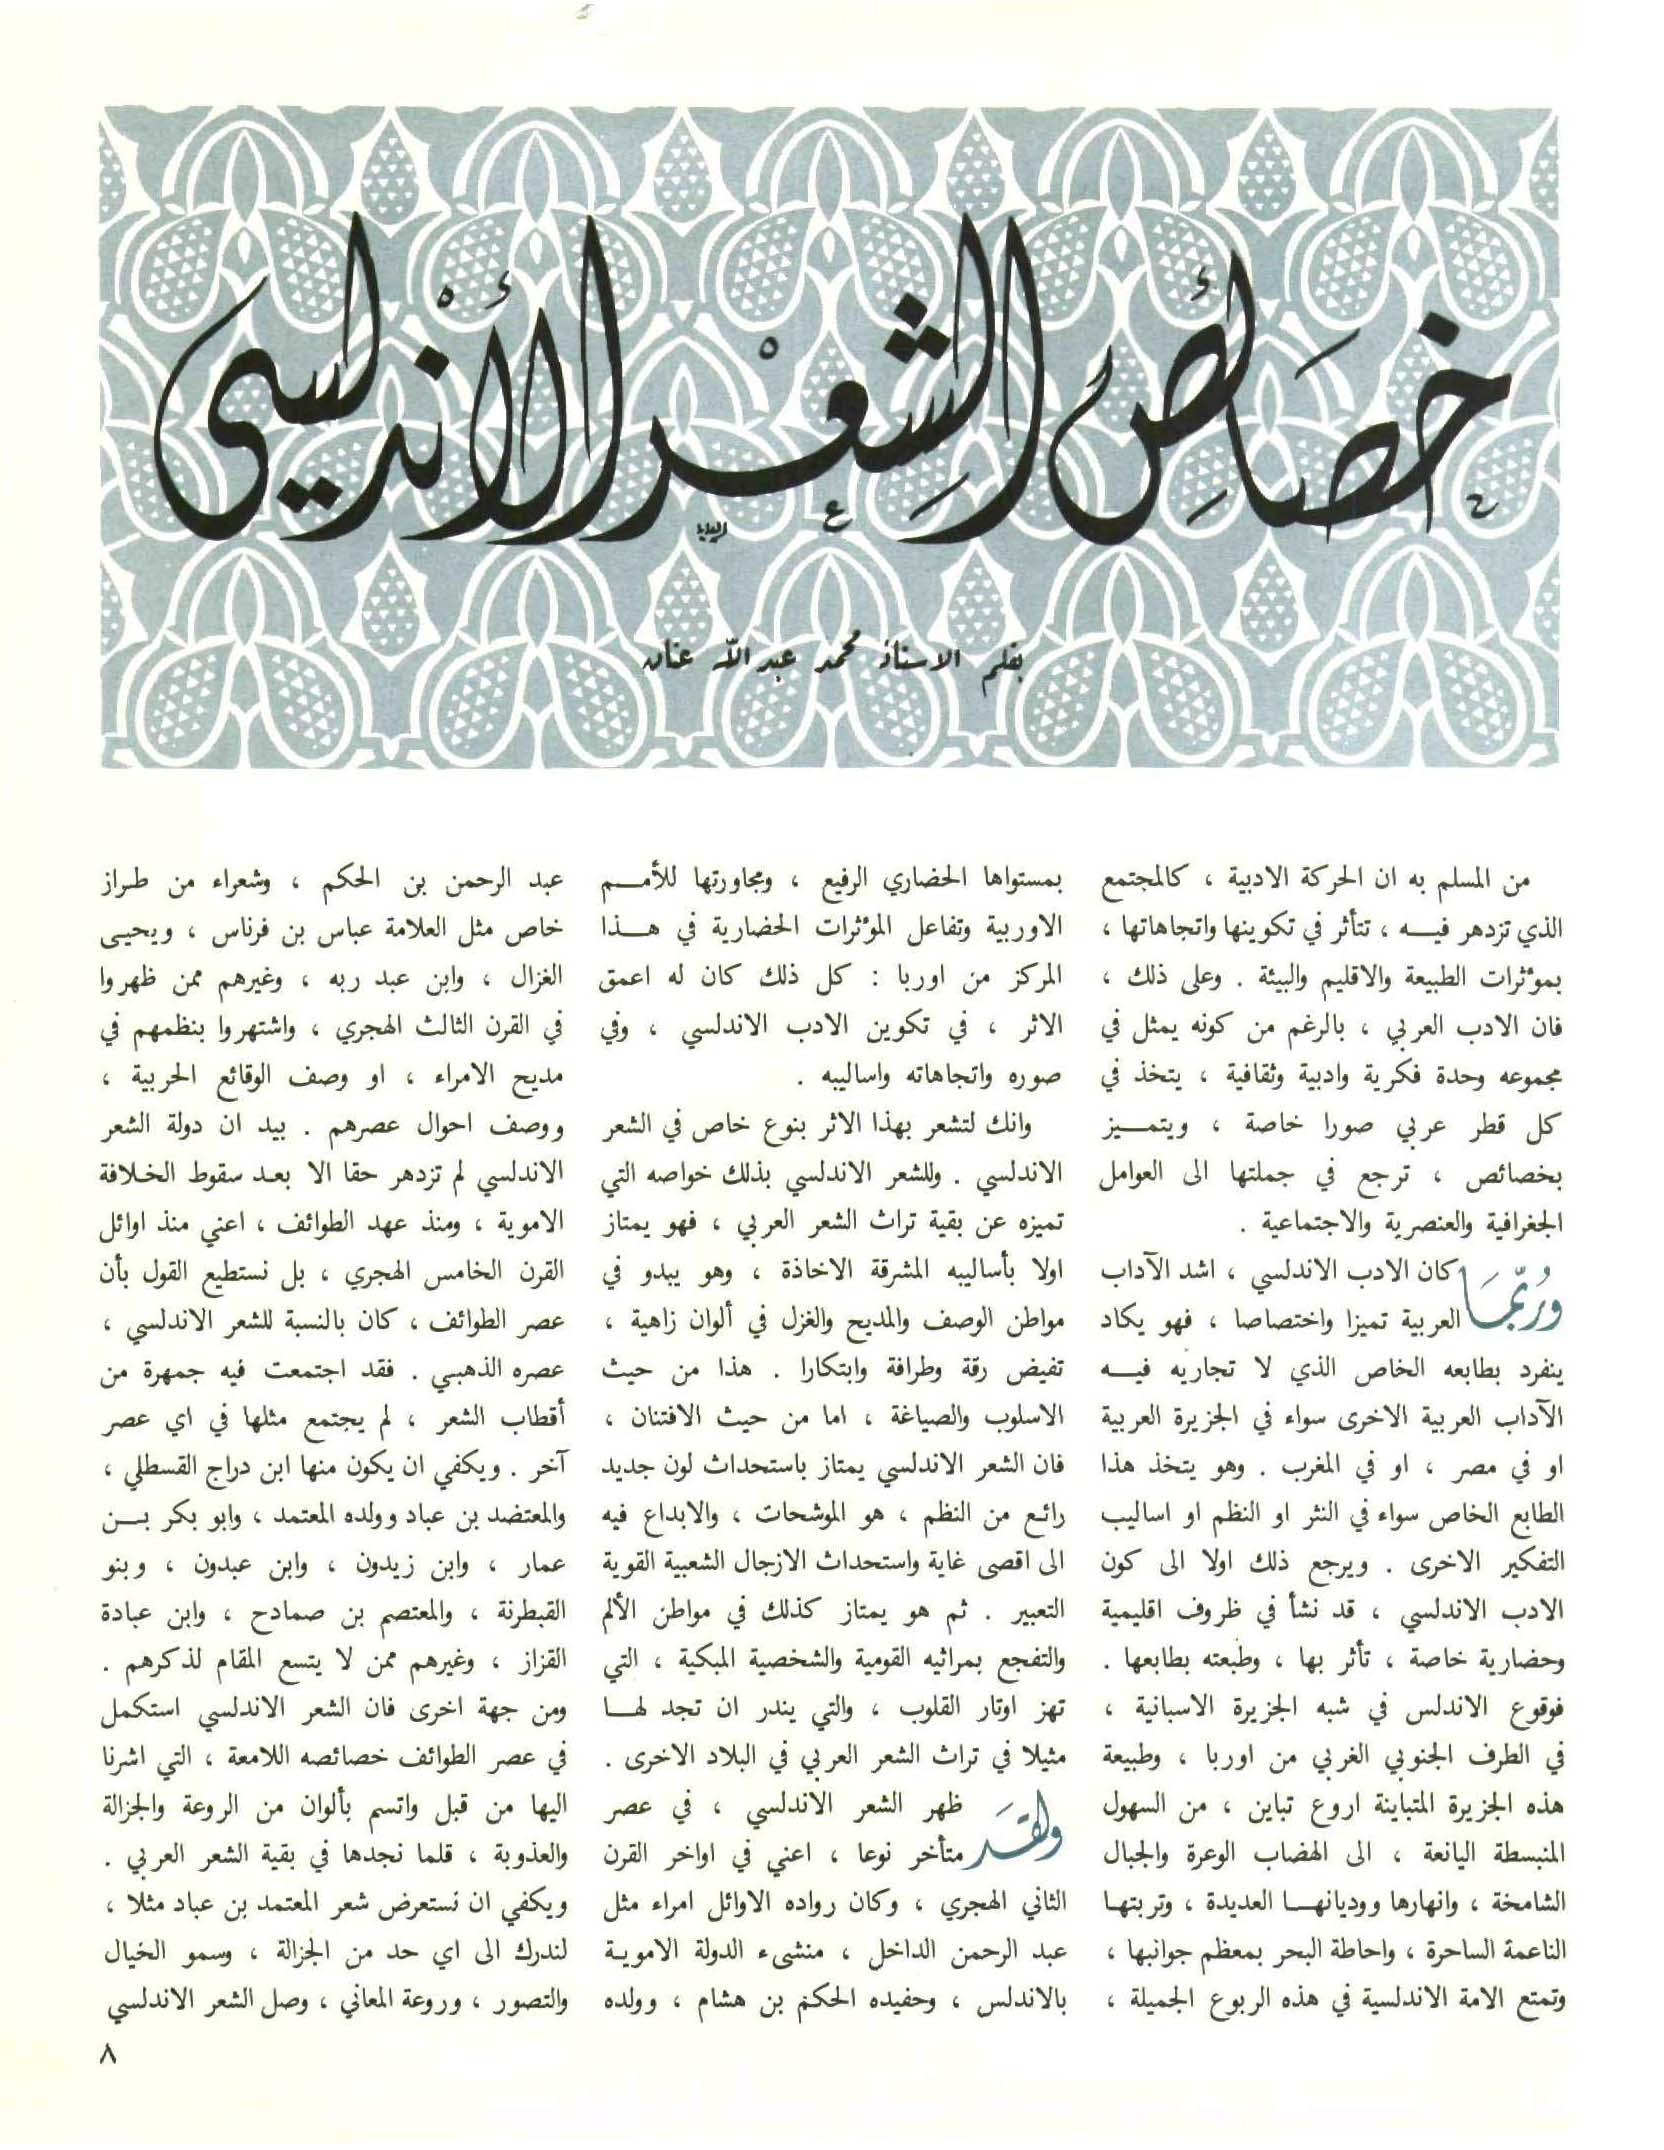 خصائص الشعر الأندلسي
بقلم الاستاذ محمد عبد الله عنان
من المسلم به ان الحركة الادبية ، كالمجتمع
الذي تزدهر فيـــه ، تتأثر في تكوينها واتجاهاتها ،
بمؤثرات الطبيعة والاقليم والبيئة . وعلى ذلك ،
فان الادب العربي ، بالرغم من كونه يمثل في
مجموعه وحدة فكرية وادبية وثقافية ، يتخذ في
كل قطر عربي صورا خاصة ، ويتمــيز
بخصائص ، ترجع في جملتها الى العوامل
الجغرافية والعنصرية والاجتماعية .
وربّما كان الادب الاندلسي ، اشد الآداب
العربية تميزا واختصاصا ، فهو يكاد
ينفرد بطابعه الخاص الذي لا تجاريه فيـــه
الآداب العربية الاخرى سواء في الجزيرة العربية
او في مصر ، او في المغرب . وهو يتخذ هذا
الطابع الخاص سواء في النثر او النظم او اساليب
التفكير الاخرى . ويرجع ذلك اولا الى كون
الادب الاندلسي ، قد نشأ في ظروف اقليمية
وحضارية خاصة ، تأثر بها ، وطبعته بطابعها .
فوقوع الاندلس في شبه الجزيرة الاسبانية ،
في الطرف الجنوبي الغربي من اوربا ، وطبيعة
هذه الجزيرة المتباينة اروع تباين ، من السهول
المنبسطة اليانعة ، الى الهضاب الوعرة والجبال
الشامخة ، وانهارها ووديانهـــا العديدة ، وتربتها
الناعمة الساحرة ، واحاطة البحر بمعظم جوانبها ،
وتمتع الامة الاندلسية في هذه الربوع الجميلة ،
بمستواها الحضاري الرفيع ، ومجاورتها للأمــم
الاوربية وتفاعل المؤثرات الحضارية في هــذا
المركز من اوربا : كل ذلك كان له اعمق
الاثر ، في تكوين الادب الاندلسي ، وفي
صوره واتجاهاته واساليبه .
وانك لتشعر بهذا الاثر بنوع خاص في الشعر
الاندلسي . وللشعر الاندلسي بذلك خواصه التي
تميزه عن بقية تراث الشعر العربي ، فهو يمتاز
اولا بأساليبه المشرقة الاخاذة ، وهو يبدو في
مواطن الوصف والمديح والغزل في ألوان زاهية ،
تفيض رقة وطرافة وابتكارا . هذا من حيث
الاسلوب والصياغة ، اما من حيث الافتنان ،
فان الشعر الاندلسي يمتاز باستحداث لون جديد
رائع من النظم ، هو الموشحات ، والابداع فيه
الى اقصى غاية واستحداث الازجال الشعبية القوية
التعبير . ثم هو يمتاز كذلك في مواطن الألم
والتفجع بمراثيه القومية والشخصية المبكية ، التي
تهز اوتار القلوب ، والتي يندر ان تجد لهــا
مثيلا في تراث الشعر العربي في البلاد الاخرى .
ولقد ظهر الشعر الاندلسي ، في عصر
متأخر نوعا ، اعني في اواخر القرن
الثاني الهجري ، وكان رواده الاوائل امراء مثل
عبد الرحمن الداخل ، منشىء الدولة الاموية
بالاندلس ، وحفيده الحكم بن هشام ، وولده
عبد الرحمن بن الحكم ، وشعراء من طراز
خاص مثل العلامة عباس بن فرناس ، ويحيى
الغزال ، وابن عبد ربه ، وغيرهم ممن ظهروا
في القرن الثالث الهجري ، واشتهروا بنظمهم في
مديح الامراء ، او وصف الوقائع الحربية ،
ووصف احوال عصرهم . بيد ان دولة الشعر
الاندلسي لم تزدهر حقا الا بعد سقوط الخلافة
الاموية ، ومنذ عهد الطوائف ، اعني منذ اوائل
القرن الخامس الهجري ، بل نستطيع القول بأن
عصر الطوائف ، كان بالنسبة للشعر الاندلسي ،
عصره الذهبي . فقد اجتمعت فيه جمهرة من
أقطاب الشعر ، لم يجتمع مثلها في اي عصر
آخر . ويكفي ان يكون منها ابن دراج القسطلي ،
والمعتضد بن عباد وولده المعتمد ، وابو بكر بــن
عمار ، وابن زيدون ، وابن عبدون ، وبنو
القبطرنة ، والمعتصم بن صمادح ، وابن عبادة
القزاز ، وغيرهم ممن لا يتسع المقام لذكرهم .
ومن جهة اخرى فان الشعر الاندلسي استكمل
في عصر الطوائف خصائصه اللامعة ، التي اشرنا
اليها من قبل واتسم بألوان من الروعة والجزالة
والعذوبة ، قلما نجدها في بقية الشعر العربي .
ويكفي ان نستعرض شعر المعتمد بن عباد مثلا ،
لندرك الى اي حد من الجزالة ، وسمو الخيال
والتصور ، وروعة المعاني ، وصل الشعر الاندلسي
٨